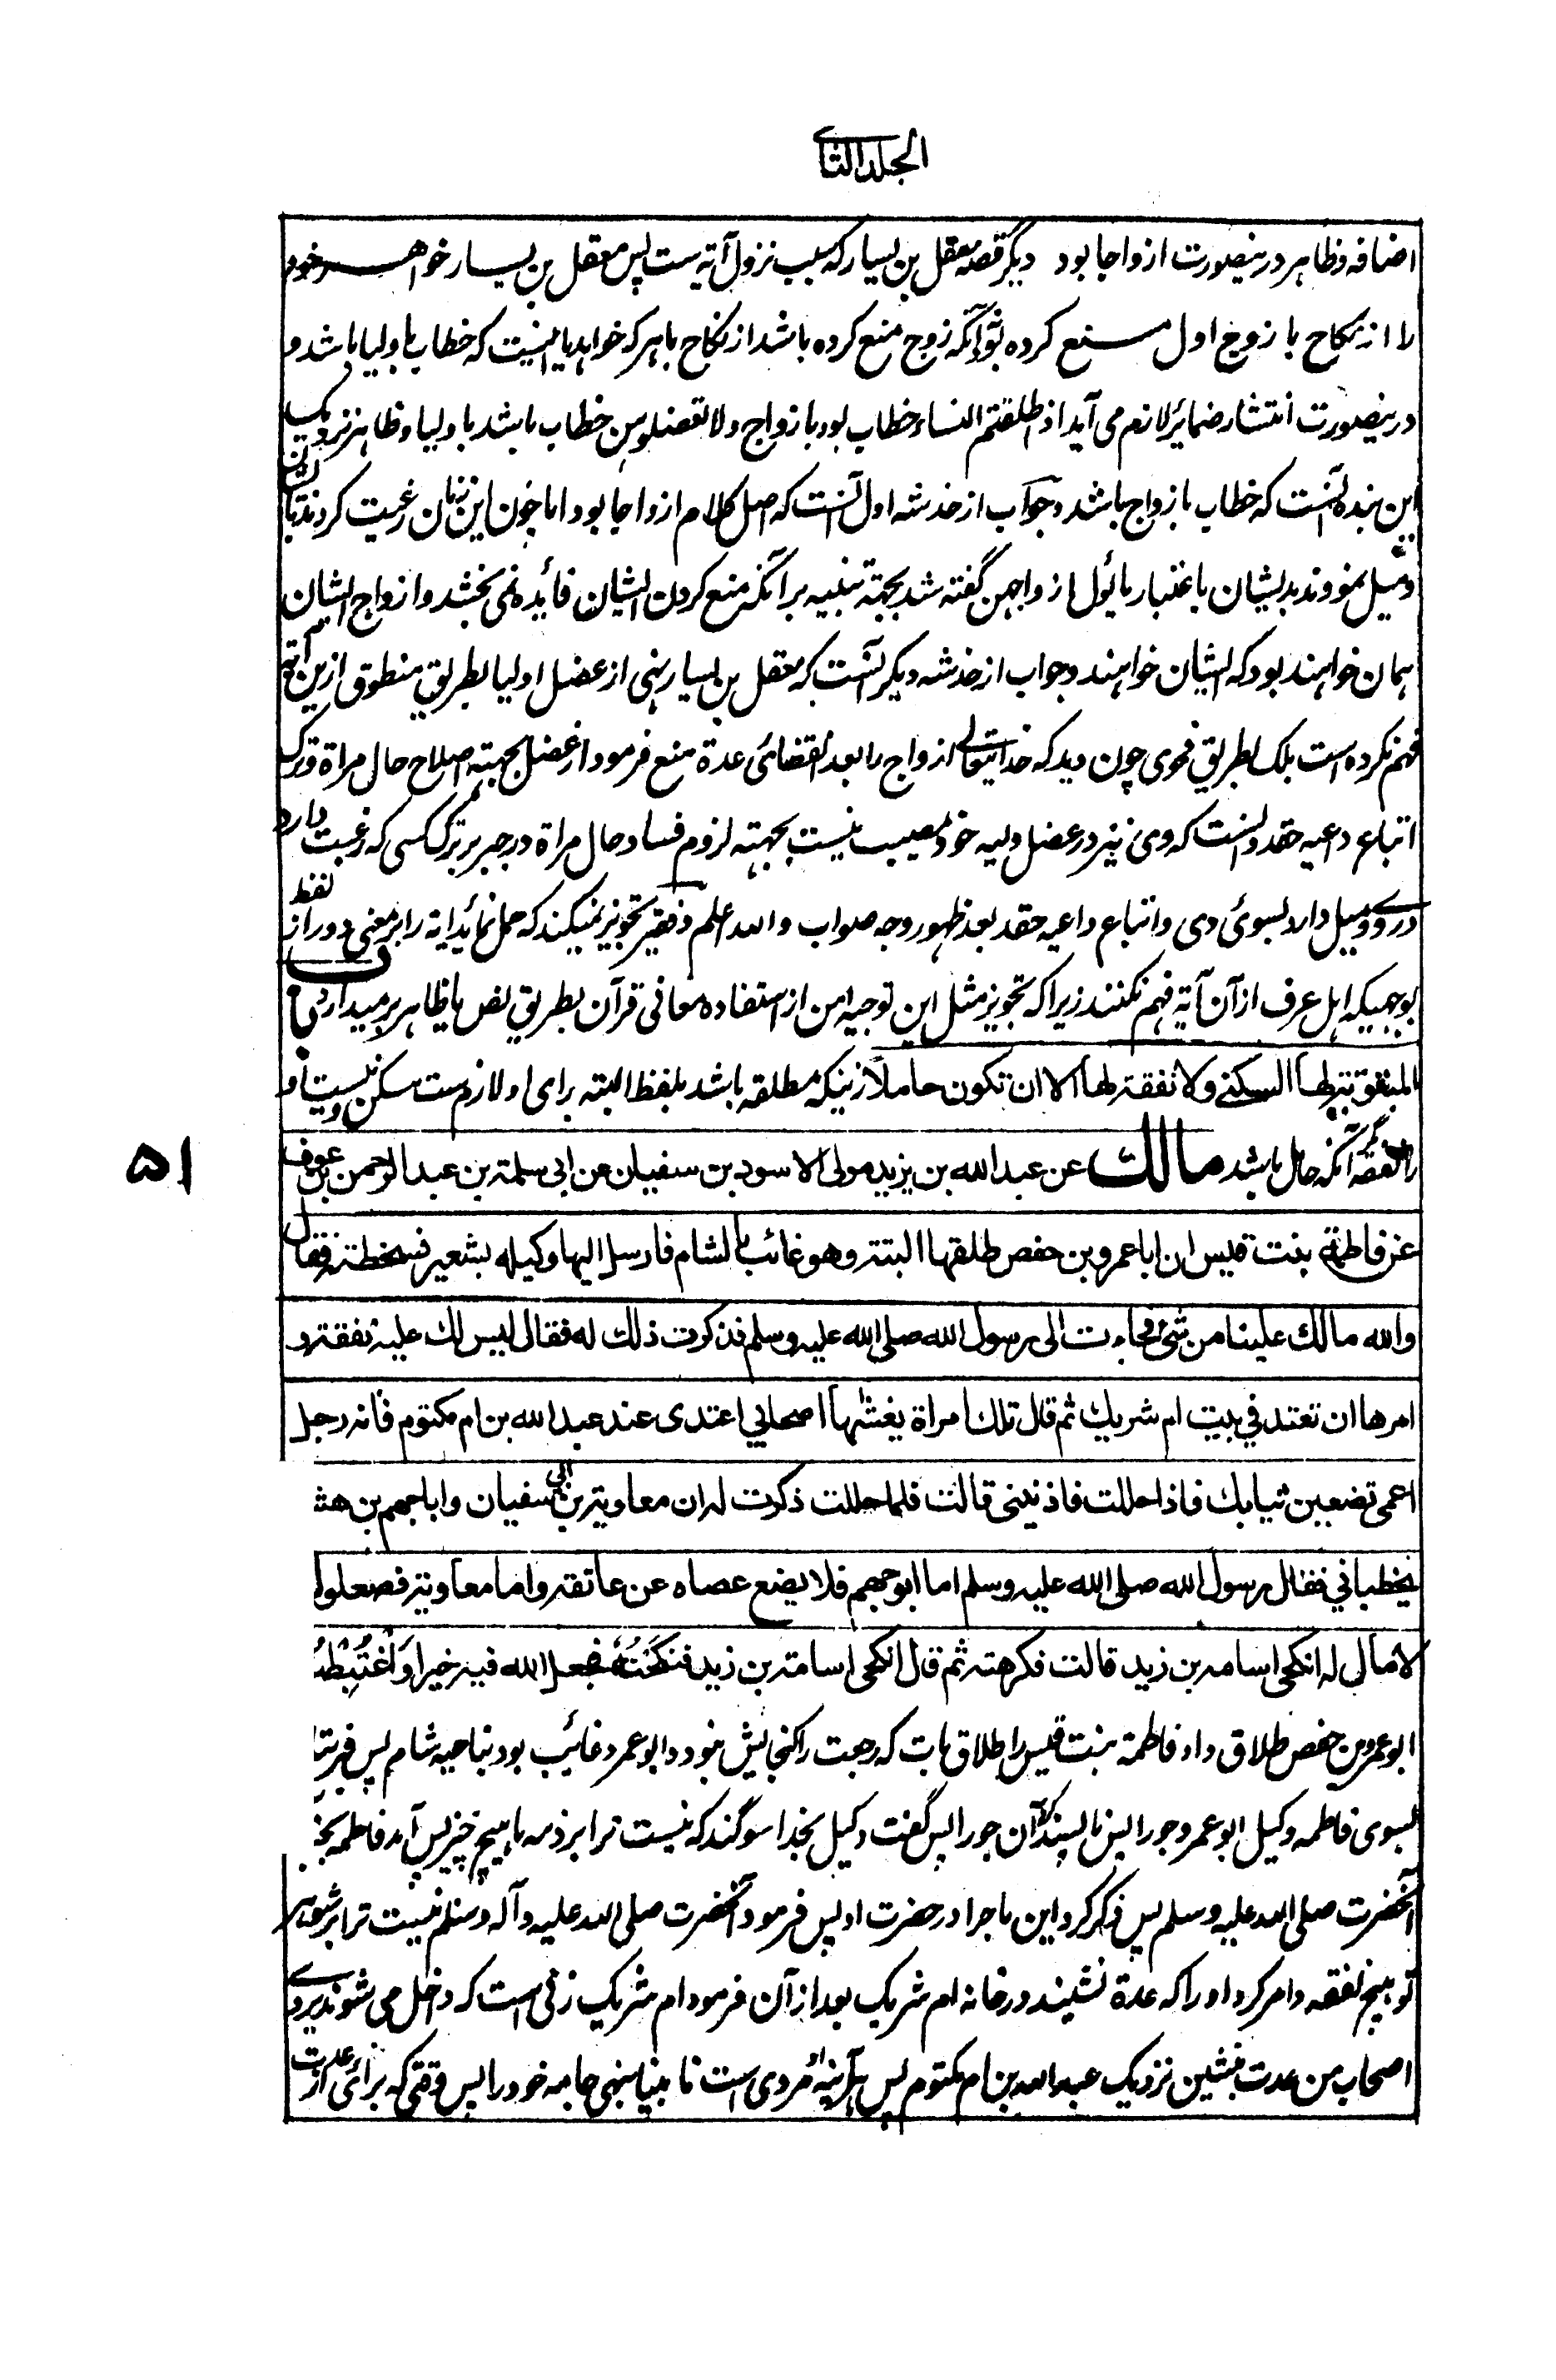 الجلد الثانے
اضافه و ظاهر درینصورت ازواجا بود دیگر قصه معقل بن یسار که سبب نزول آیه ست پس معقل بن یسار خواهر خود
را از نکاح با زوج اول منع کرده بود آنکه زوج منع کرده باشد از نکاح با هر که خواهد یا اینست که خطاب باولیا باشد و
درینصورت انتشار ضمایر لازم می آید اذ اطلقتم النساء خطاب بود بازواج و لا تعضلوهن خطاب باشد باولیا و ظاهر نزدیک
این بنده آنست که خطاب بازواج باشد و جواب از خدشه اول آنست که اصل کلام ازواجا بود اما چون این زنان رغبت کردند بایشان
و میل نمودند بدیشان باعتبار مایؤل ازواجهن گفته شد بجهة تنبیه بر آنکه منع کردن ایشان فائده نمی بخشد و ازواج ایشان
همان خواهند بود که ایشان خواهند و جواب از خدشه دیگر آنست که معقل بن یسار نهی از عضل اولیا بطریق منطوق ازین آیة
فهم نکرده است بلکه بطریق فحوی چون دید که خدایتعالے ازواج را بعد انقضائی عدة منع فرمود از عضل بجهته اصلاح حال مراة و ترک
اتباع داعیه حقد دانست که وی نیز در عضل ولیه خود مصیب نیست بجهته لزوم فساد حال مراة در جبر بر ترک کسی که رغبت دارد
در وے و میل دارد بسوئ وی و اتباع داعیه حقد بعد ظهور وجه صواب والله اعلم و فقیر تجویز نمیکند که حمل نمائید آیه را بر معنی دور از لفظ
بوجهیکه اهل عرف از آن آیة فهم نکنند زیرا که تجویز مثل این توجیه امن از استفاده معانی قرآن بطریق نص یا ظاهر بر میدارد باب
المبتوتة لها السکنے ولا نفقة لها الا ان تکون حاملا زنیکه مطلقه باشد بلفظ البته برای او لازم ست سکن و نیست او
را نفقه مگر آنکه حامل باشد مالك عن عبد الله بن یزید مولی الاسود بن سفیان عن ابی سلمة بن عبد الرحمن بن عوف
عن فاطمة بنت قیس ان ابا عمرو بن حفص طلقها البتة وهو غائب بالشام فارسل الیها وکیله بشعیر فسخطته فقال
والله مالك علینا من شئ فجاءت الی رسول الله صلی الله علیه وسلم فذکرت ذلك له فقال لیس لك علیه نفقة و
امرها ان تعتد فی بیت ام شریك ثم قال تلك امراة یغشاها اصحابی اعتدی عند عبد الله بن ام مکتوم فانه رجل
اعمی تضعین ثیابك فاذا حللت فاذنینی قالت فلما حللت ذکرت له ان معاویة بن ابی سفیان وابا جهم بن هشـ
یخطبانی فقال رسول الله صلی الله علیه وسلم اما ابو جهم فلا یضع عصاه عن عاتقه واما معاویة فصعلوك
لا مال له انکحی اسامه بن زید قالت فکرهته ثم قال انکحی اسامة بن زید فنکحته فجعل الله فیه خیرا واغتبطت
ابو عمرو بن حفص طلاق داد فاطمة بنت قیس را طلاق بات که رجعت را گنجایش نبود و ابو عمرو غائب بود بناحیه شام پس فرستا
بسوی فاطمه وکیل ابو عمرو جو را پس ناپسند کرد آن جو را پس گفت وکیل بخدا سوگند که نیست ترا بر ذمه ما هیچ چیز پس آمد فاطمه بخـ
آنحضرت صلی الله علیه وسلم پس ذکر کرد این ماجرا در حضرت او پس فرمود آنحضرت صلی الله علیه وآله وسلم نیست ترا بر شوهر
تو هیچ نفقه و امر کرد او را که عدة نشیند در خانه ام شریک بعد از آن فرمود ام شریک زنی است که داخل می شوند بر وے
اصحاب من عدت بنشین نزدیک عبد الله بن ام مکتوم پس هرآئینه او مردی است نابینا بنهی جامه خود را پس وقتی که برائی از عدت
۵۱